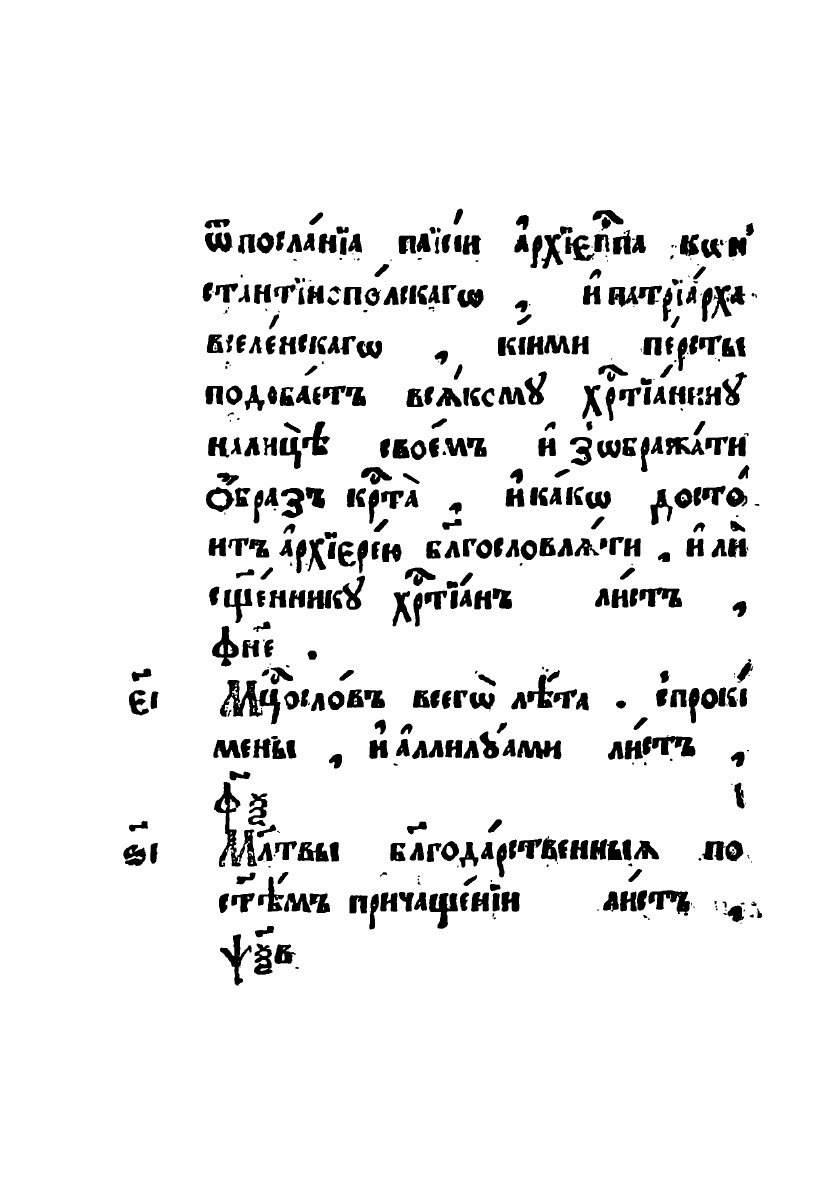 Ѿ посла́нїѧ паїсі́и а҆рхїепⷭ҇па кѡн̾
стантїнопо́лскагѡ , и҆ патрїа́рха
вселе́нскагѡ , кі́ими пе́рсты
подоба́етъ всѧ́кому хрⷭ҇тїа́нину
на лицѣ̀ свое́мъ и҆зѡбража́ти
ѻ҆́бразъ крⷭ҇та̀ , и҆ ка́кѡ досто́
итъ а҆рхїере́ю бл҃гословлѧ́ти , и҆лѝ
сщ҃е́ннику хрⷭ҇тїа́нъ ли́стъ ,
фн҃е .
є҃і Мцⷭ҇осло́въ всегѡ̀ лѣ́та . с̾ проки́
мены , и҆ а҆ллилꙋ́ами ли́стъ ,
ф҃ѯ
ѕ҃і Мл҃твы бл҃года́рственныѧ по
ст҃ѣ́мъ причаще́нїи ли́стъ ,
ѱ҃ѯв